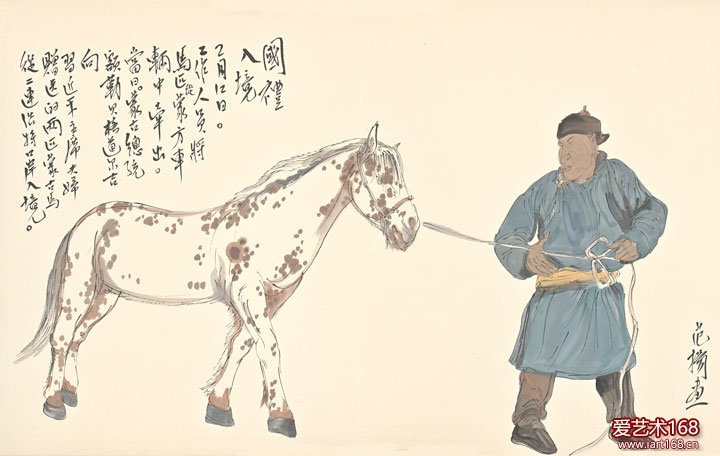 國禮
入境
2月12日。
工作人員將
馬匹從蒙方車
輛中牽出。
當日。蒙古總統
額勒貝格道尔吉
向
習近平主席夫婦
贈送的两匹蒙古馬
從二連浩特口岸入境。
范揚画
爱艺术168
www.iart168.cn